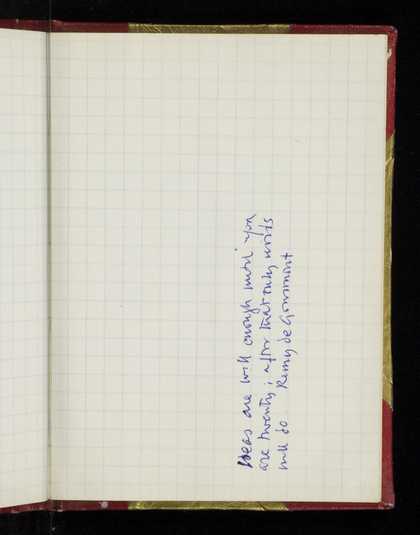 Ideas are well enough until you
are twenty; after that only words
will do Remy de Gourmont